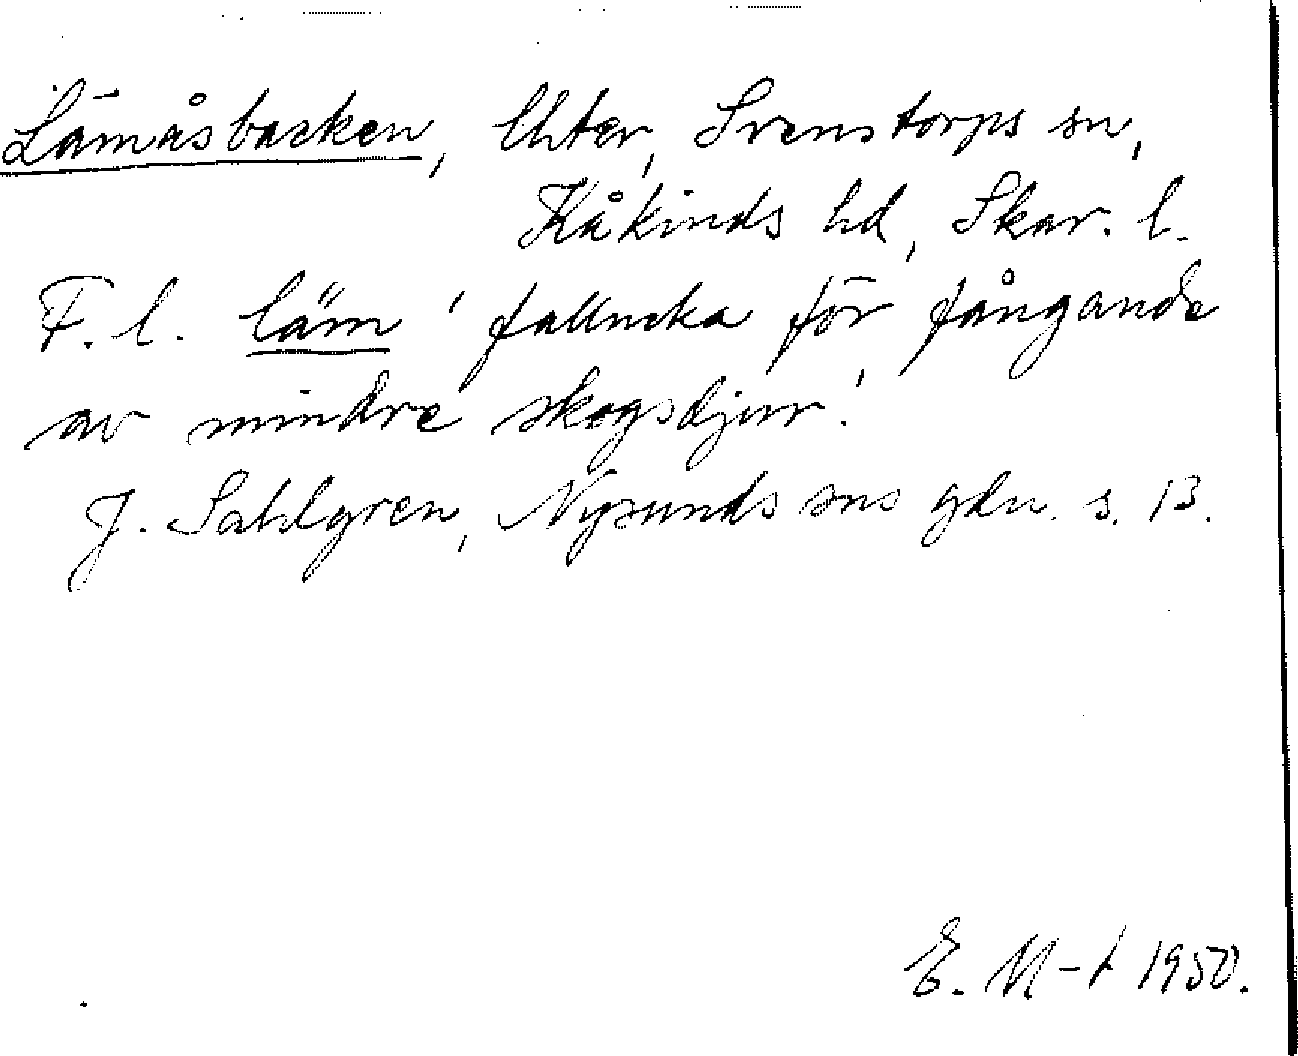 Lämåsbacken, Uter, Svenstorps sn,
Kåkinds hd, Skar. l.
F. l. läm 'fallucka för fångande
av mindre skogsdjur'.
J. Sahlgren, Nysunds sns gdn. s. 13.
E. M-t 1950.